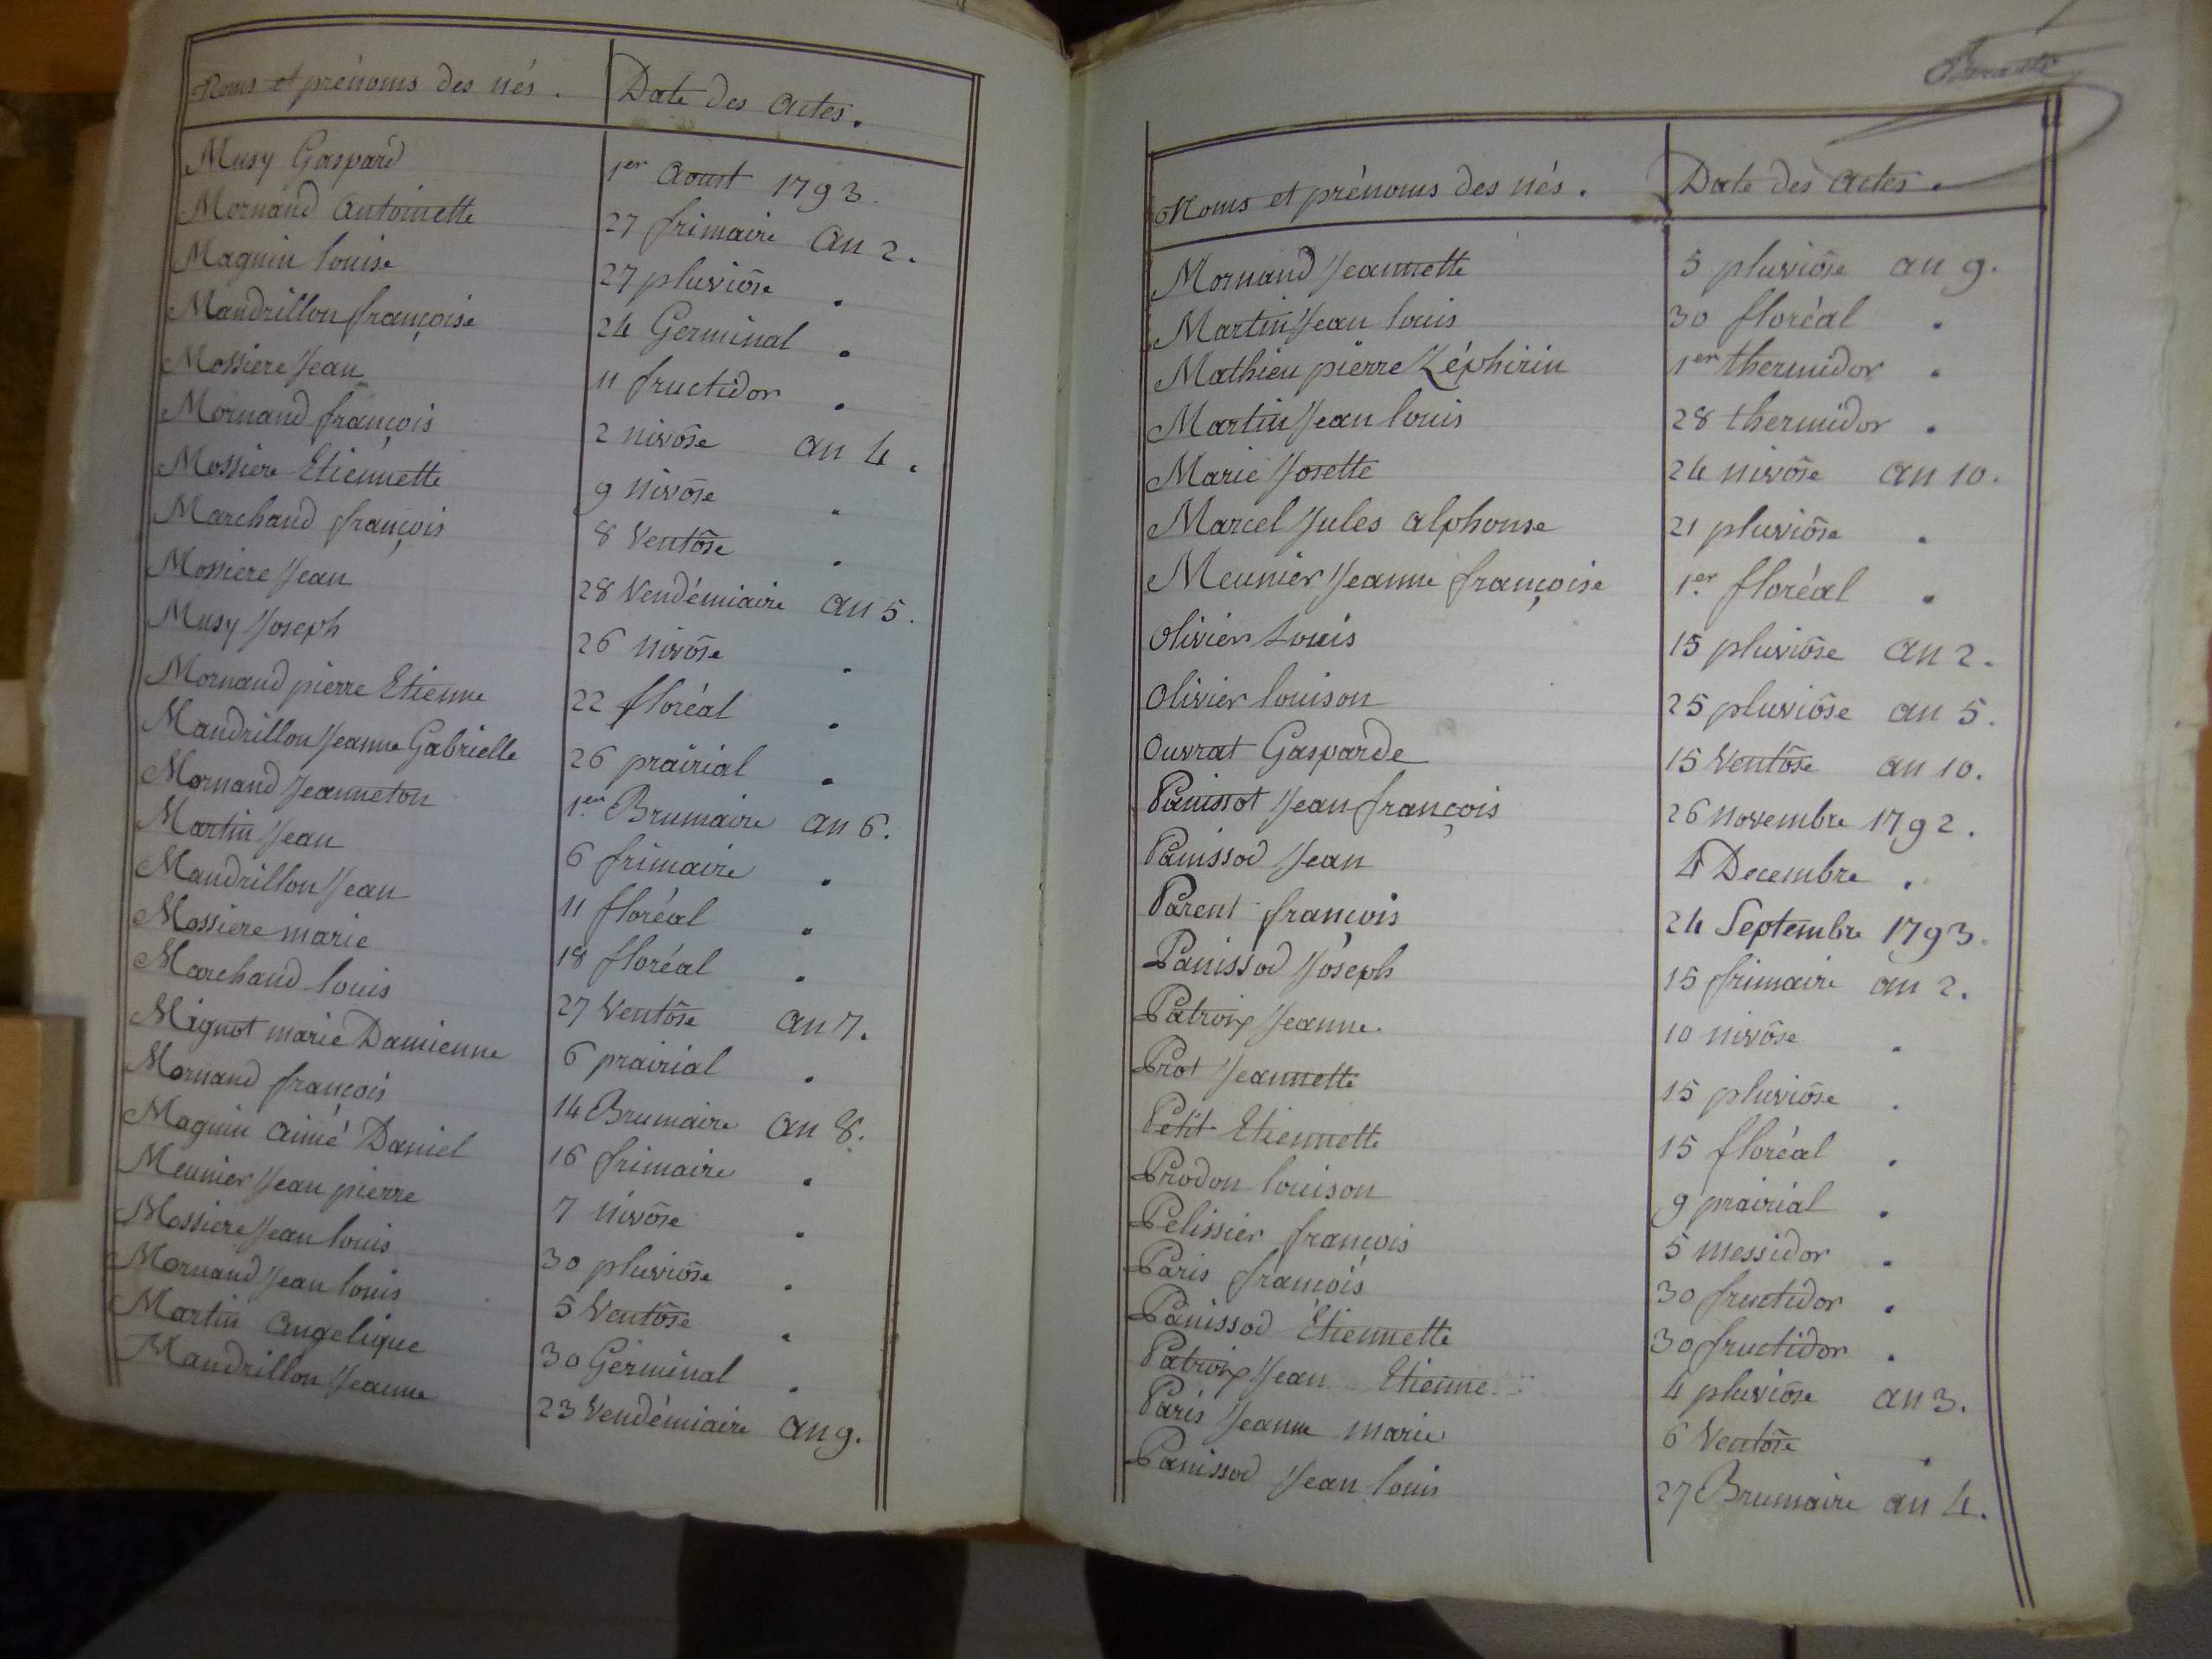 Noms et prénoms des nés. Date des actes.
Musy Gaspard 1er Aoust 1793.
Mornand Antoinette 27 frimaire an 2.
Magnin louise 27 pluviôse .
Mandrillon françoise 24 Germinal .
Mossiere Jean 11 fructidor .
Mornand françois 2 nivôse an 4.
Mossiere Etiennette 9 nivôse "
Marchand françois 8 Ventôse .
Mossiere Jean 28 Vendémiaire an 5.
Musy Joseph 26 nivôse .
Mornand pierre Etienne 22 floréal .
Mandrillon Jeanne Gabrielle 26 prairial .
Mornand Jeanneton 1er Brumaire an 6.
Martin Jean 6 frimaire .
Mandrillon Jean 11 floréal .
Mossiere marie 18 floréal .
Marchand louis 27 Ventôse an 7.
Mignot marie Damienne 6 prairial .
Mornand françois 14 Brumaire an 8.
Magnin aimé Daniel 16 frimaire .
Meunier Jean pierre 7 nivôse .
Mossiere Jean louis 30 pluviôse .
Mornand Jean louis 5 Ventôse .
Martin Angelique 30 Germinal .
Mandrillon Jeanne 23 Vendémiaire an 9.
Noms et prénoms des nés. Date des actes.
Mornand Jeannette 5 pluviôse an 9.
Martin Jean louis 30 floréal .
Mathieu pierre Zéphirin 1er thermidor .
Martin Jean louis 28 thermidor .
Marie Josette 24 nivôse an 10.
Marcel Jules alphonse 21 pluviôse .
Meunier Jeanne françoise 1er floréal .
Olivier Louis 15 pluviôse an 2.
Olivier louison 25 pluviôse an 5.
Ouvrat Gasparde 15 Ventôse an 10.
Panissot Jean françois 26 novembre 1792.
Panissod Jean 4 Decembre .
Parent françois 24 Septembre 1793.
Panissod Joseph 15 frimaire an 2.
Patroix Jeanne. 10 nivôse .
Prot Jeannette 15 pluviôse .
Petit Etiennette 15 floréal .
Prodon louison 9 prairial .
Pelissier françois 5 messidor .
Paris françois 30 fructidor .
Panissod Etiennette 30 fructidor .
Patroix Jean Etienne 4 pluviôse an 3.
Paris Jeanne marie 6 Ventôse .
Panissod Jean louis 27 Brumaire an 4.